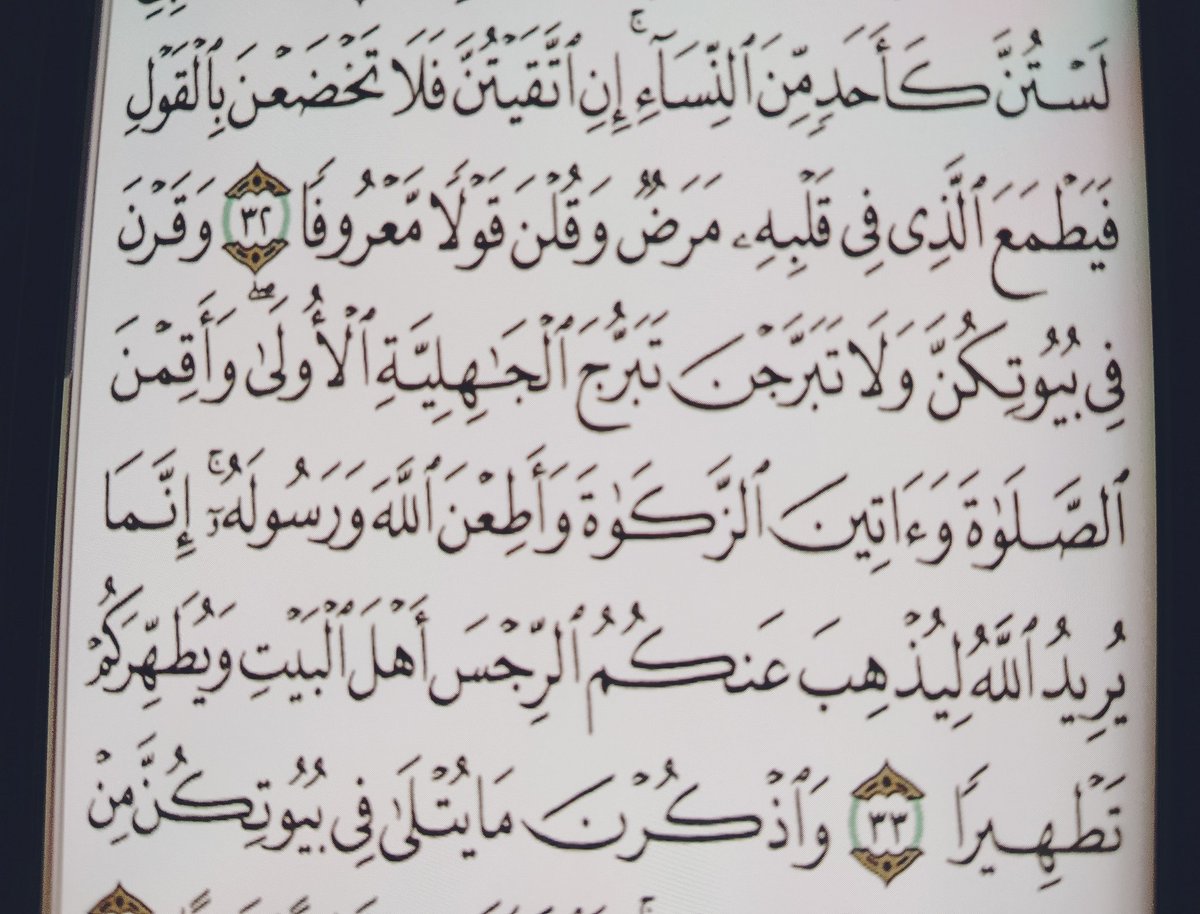 لَسۡتُنَّ كَأَحَدٖ مِّنَ ٱلنِّسَآءِۚ إِنِ ٱتَّقَيۡتُنَّ فَلَا تَخۡضَعۡنَ بِٱلۡقَوۡلِ
فَيَطۡمَعَ ٱلَّذِي فِي قَلۡبِهِۦ مَرَضٞ وَقُلۡنَ قَوۡلٗا مَّعۡرُوفٗا ٣٢ وَقَرۡنَ
فِي بُيُوتِكُنَّ وَلَا تَبَرَّجۡنَ تَبَرُّجَ ٱلۡجَٰهِلِيَّةِ ٱلۡأُولَىٰۖ وَأَقِمۡنَ
ٱلصَّلَوٰةَ وَءَاتِينَ ٱلزَّكَوٰةَ وَأَطِعۡنَ ٱللَّهَ وَرَسُولَهُۥٓۚ إِنَّمَا
يُرِيدُ ٱللَّهُ لِيُذۡهِبَ عَنكُمُ ٱلرِّجۡسَ أَهۡلَ ٱلۡبَيۡتِ وَيُطَهِّرَكُمۡ
تَطۡهِيرٗا ٣٣ وَٱذۡكُرۡنَ مَا يُتۡلَىٰ فِي بُيُوتِكُنَّ مِنۡ